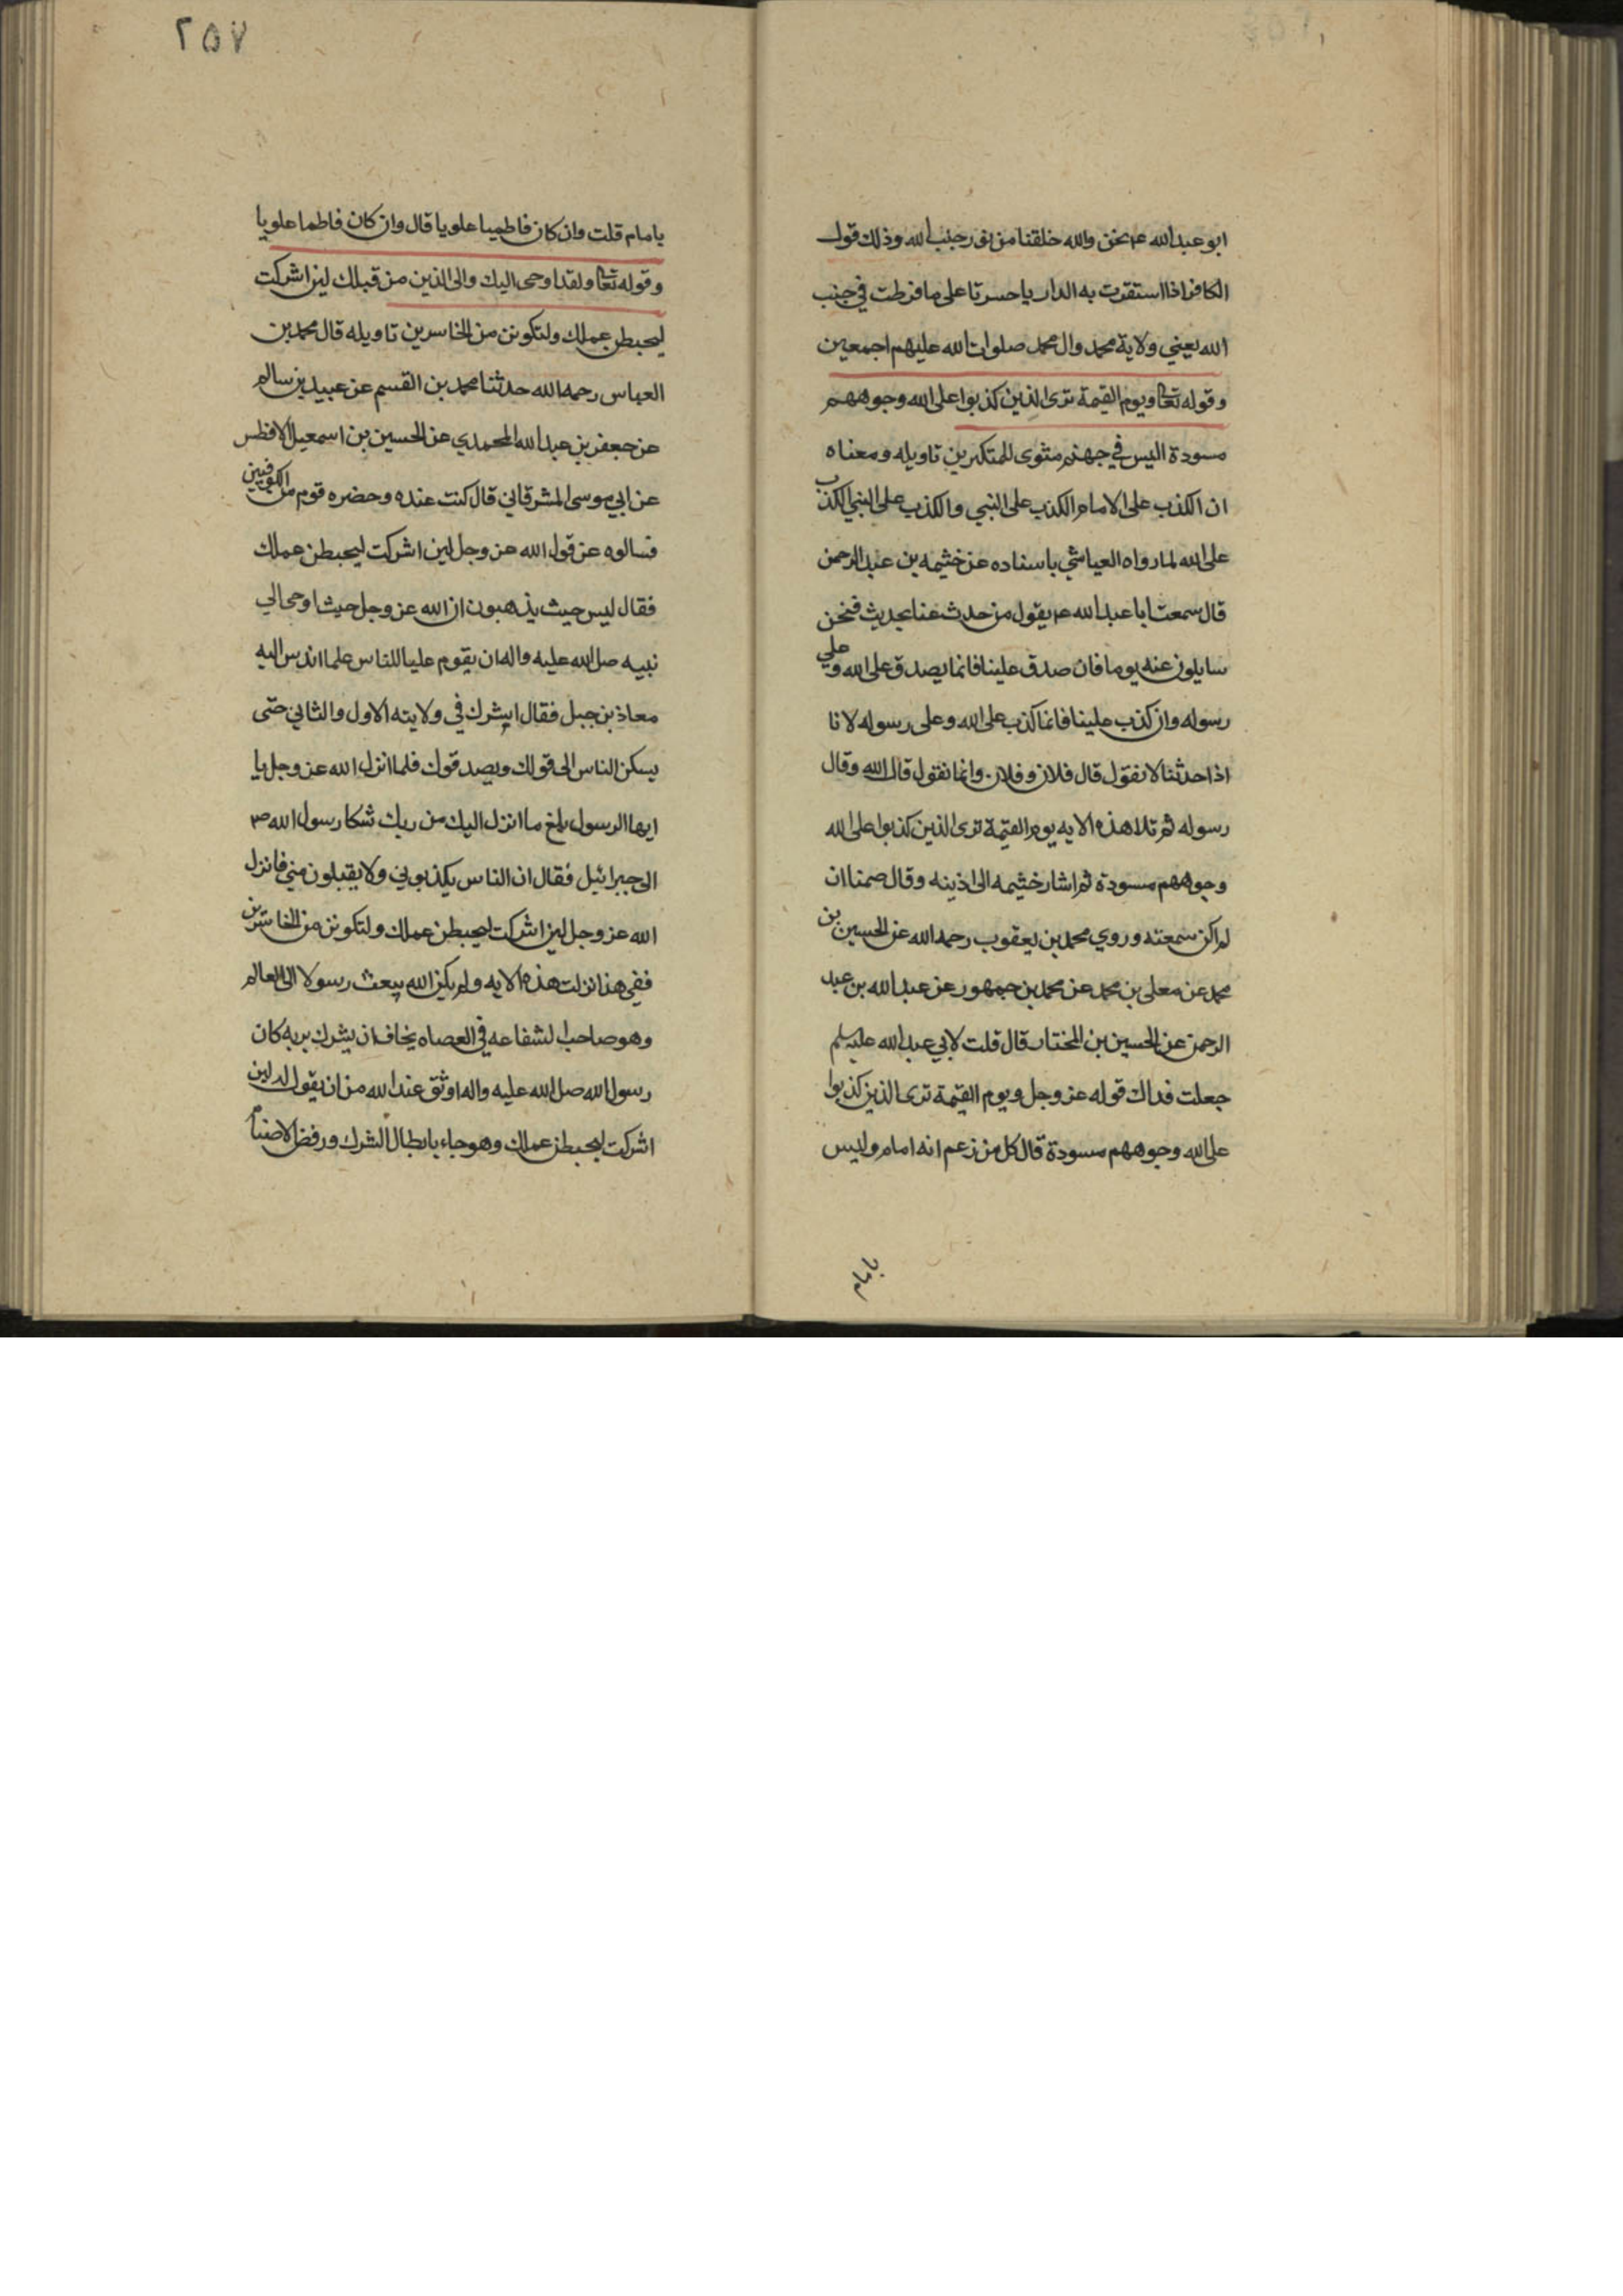 ابو عبد الله عم نحن والله خلقنا من نور جنب الله وذلك قول
الكافر اذا استقرت به الدار يا حسرتا على ما فرطت في جنب
الله يعني ولاية محمد وال محمد صلوات الله عليهم اجمعين
وقوله تعا ويوم القيمة ترى الذين كذبوا على الله وجوههم
مسودة اليس في جهنم مثوى للمتكبرين تاويله ومعناه
ان الكذب على الامام الكذب على النبي والكذب على النبي الكذب
على الله لما رواه العياشي باسناده عن خثيمه بن عبد الرحمن
قال سمعت ابا عبد الله عم يقول من حدث عنا بحديث فنحن
سايلون عنه يوما فان صدق علينا فانما يصدق على الله وعلى
رسوله وان كذب علينا فانما كذب على الله وعلى رسوله لانا
اذا حدثنا لا نقول قال فلان وفلان وانما نقول قال الله وقال
رسوله ثم تلا هذه الايه يوم القيمة ترى الذين كذبوا على الله
وجوههم مسودة ثم اشار خثيمه الى اذينه وقال صمتا ان
لم اكن سمعته وروي محمد بن يعقوب رحمه الله عن الحسين بن
محمد عن معلى بن محمد عن محمد بن جمهور عن عبد الله بن عبد
الرحمن عن الحسين بن المختار قال قلت لابي عبد الله عليه سلم
جعلت فداك قوله عز وجل ويوم القيمة ترى الذين كذبوا
على الله وجوههم مسودة قال كل من زعم انه امام وليس
بامام
٢٥٧
بامام قلت وان كان فاطميا علويا قال وان كان فاطما علويا
وقوله تعا ولقد اوحى اليك والى الذين من قبلك لين اشركت
ليحبطن عملك ولتكونن من الخاسرين تاويله قال محمد بن
العباس رحمه الله حدثنا محمد بن القسم عن عبيد بن سالم
عن جعفر بن عبد الله المحمدي عن الحسين بن اسمعيل الافطس
عن ابي موسى المشرقاني قال كنت عنده وحضره قوم من الكوفيين
فسالوه عن قول الله عز وجل لين اشركت ليحبطن عملك
فقال ليس حيث يذهبون ان الله عز وجل حيث اوحى الي
نبيه صلى الله عليه واله ان يقوم عليا للناس علما اندس اليه
معاذ بن جبل فقال اشرك في ولايته الاول والثاني حتى
يسكن الناس الى قولك ويصدقوك فلما انزل الله عز وجل يا
ايها الرسول بلغ ما انزل اليك من ربك شكا رسول الله ص
الى جبرائيل فقال ان الناس يكذبوني ولا يقبلون مني فانزل
الله عز وجل لين اشركت ليحبطن عملك ولتكونن من الخاسرين
ففي هذا نزلت هذه الايه ولم يكن الله يبعث رسولا الى العالم
وهو صاحب الشفاعه في العصاه يخاف ان يشرك بربه كان
رسول الله صلى الله عليه واله اوثق عند الله من ان يقول له لين
اشركت ليحبطن عملك وهو جاء بابطال الشرك ورفض الاصنام